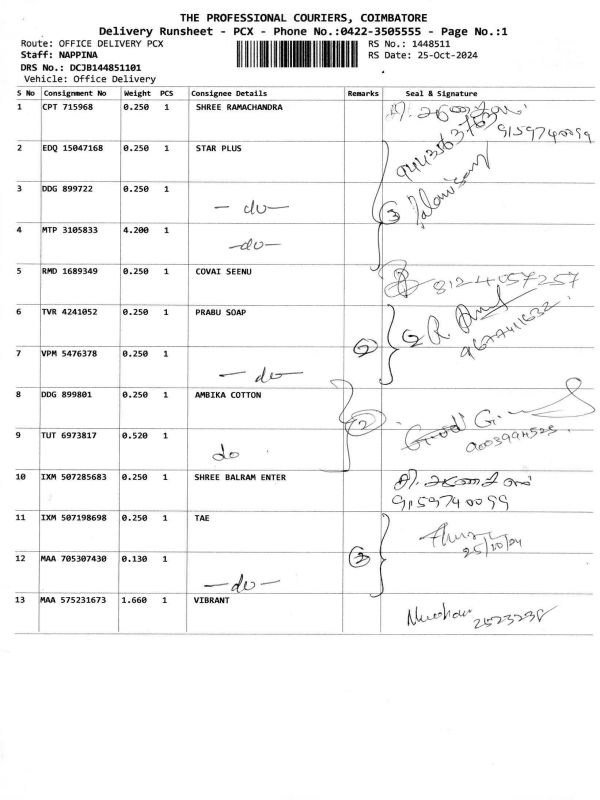 THE PROFESSIONAL COURIERS, COIMBATORE
Delivery Runsheet - PCX - Phone No.:0422-3505555 - Page No.:1
Route: OFFICE DELIVERY PCX RS No.: 1448511
Staff: NAPPINA RS Date: 25-Oct-2024
DRS No.: DCJB144851101
Vehicle: Office Delivery
S No Consignment No Weight PCS Consignee Details Remarks Seal & Signature
1 CPT 715968 0.250 1 SHREE RAMACHANDRA
9159740099
2 EDQ 15047168 0.250 1 STAR PLUS
3 DDG 899722 0.250 1 - do - 3
4 MTP 3105833 4.200 1 - do -
5 RMD 1689349 0.250 1 COVAI SEENU 8124057257
6 TVR 4241052 0.250 1 PRABU SOAP
7 VPM 5476378 0.250 1 - do - 2
8 DDG 899801 0.250 1 AMBIKA COTTON
9 TUT 6973817 0.520 1 do 2
10 IXM 507285683 0.250 1 SHREE BALRAM ENTER
9159740099
11 IXM 507198698 0.250 1 TAE
25/10/24
12 MAA 705307430 0.130 1 - do - 2
13 MAA 575231673 1.660 1 VIBRANT